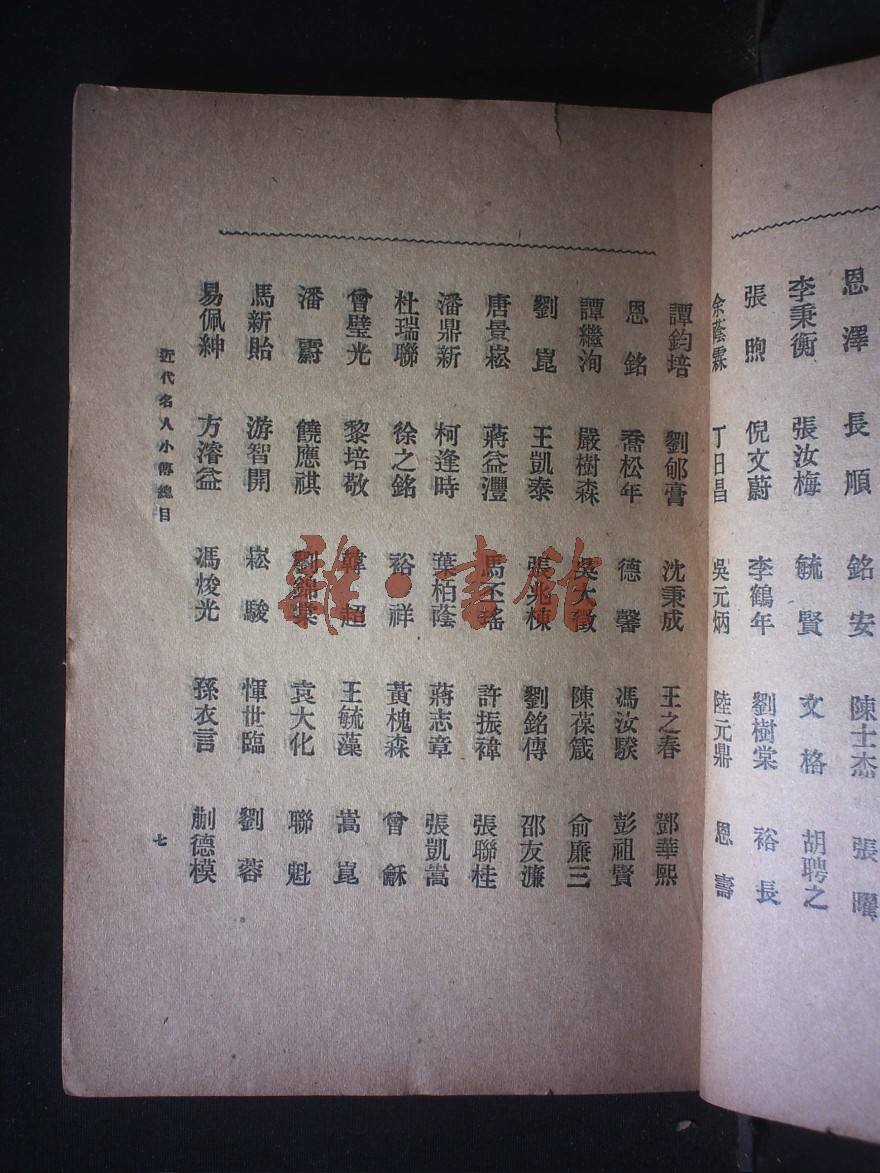 恩澤 長順 銘安 陳士杰 張曜
李秉衡 張汝梅 毓賢 文格 胡聘之
張煦 倪文蔚 李鶴年 劉樹棠 裕長
余蔭霖 丁日昌 吳元炳 陸元鼎 恩壽
譚鈞培 劉郇膏 沈秉成 王之春 鄧華熙
恩銘 喬松年 德馨 馮汝騤 彭祖賢
譚繼洵 嚴樹森 吳大澂 陳葆箴 俞廉三
劉崑 王凱泰 張兆棟 劉銘傳 邵友濂
唐景崧 蔣益灃 馬丕瑤 許振禕 張聯桂
潘鼎新 柯逢時 葉柏蔭 蔣志章 張凱嵩
杜瑞聯 徐之銘 裕祥 黃槐森 曾龢
曾璧光 黎培敬 韓超 王毓藻 嵩崑
潘霨 饒應祺 劉錦棠 袁大化 聯魁
馬新貽 游智開 崧駿 惲世臨 劉蓉
易佩紳 方濬益 馮焌光 孫衣言 蒯德模
近代名人小傳總目
七
雜·書館